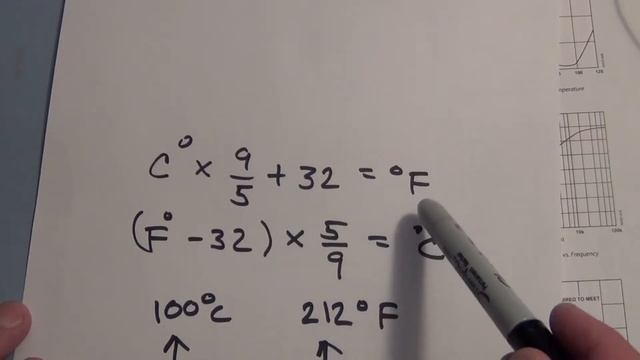 C° × 9/5 + 32 = °F
(F° - 32) × 5/9 = °C
100°C 212°F
10 100 125
mperature
10k 100k
vs. Frequency
RED TO MEET